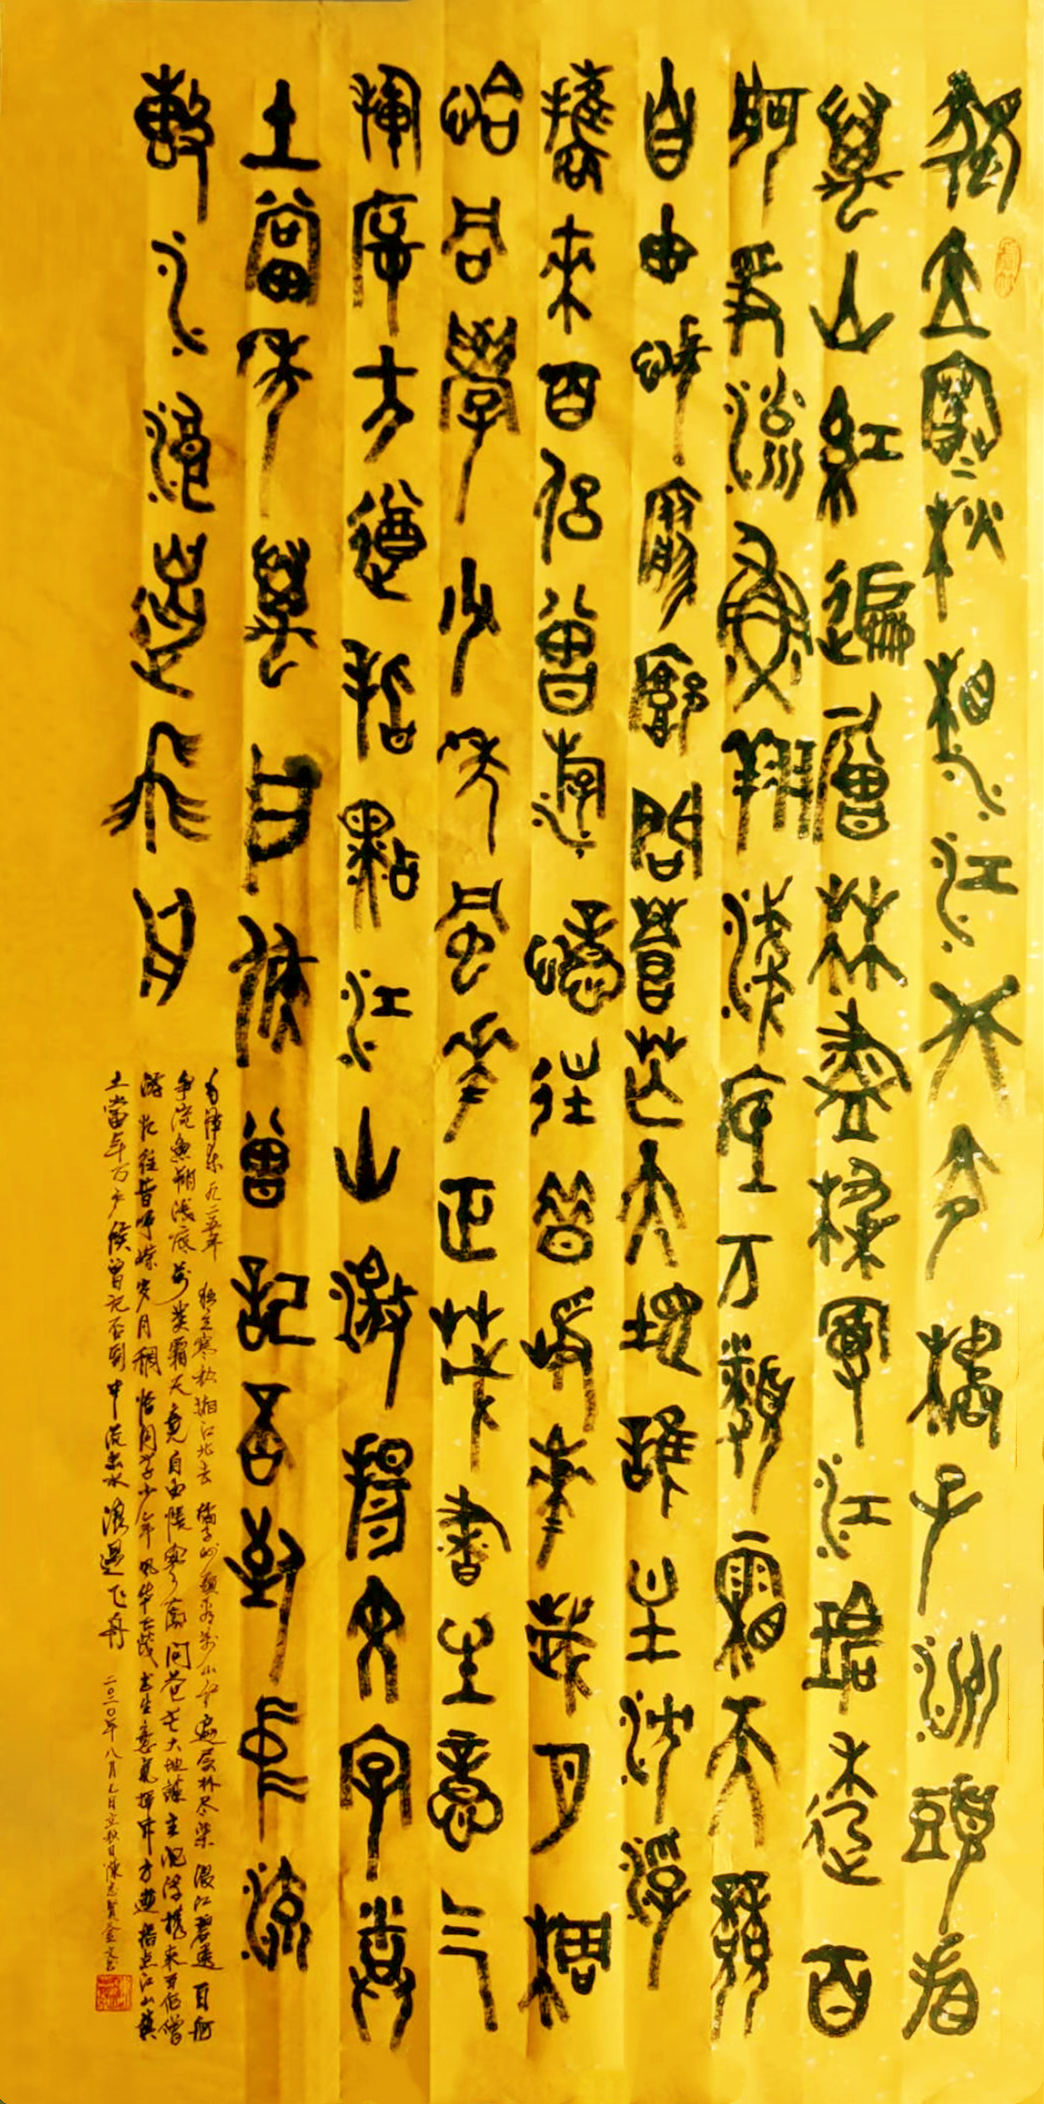 獨立寒秋湘江北去橘子洲頭看
萬山紅遍層林盡染漫江碧透百
舸爭流魚翔淺底万類霜天競
自由悵寥廓問蒼茫大地誰主沉浮
攜來百侶曾遊憶往昔崢嶸歲月稠
恰同學少年風華正茂書生意气
揮斥方遒指點江山激揚文字糞
土當年萬戶侯曾記否到中流
擊水浪遏飛舟
毛澤东一九二五年 独立寒秋湘江北去橘子洲頭看万山红遍层林尽染漫江碧透百舸
争流魚翔浅底万类霜天竞自由悵寥廓问苍茫大地谁主沉浮携来百侣曾
游忆往昔峥嵘岁月稠恰同学少年风华正茂书生意气挥斥方遒指点江山粪
土當年万户侯曾记否到中流击水浪遏飞舟 二〇二〇年八月七日立秋日陳志賢金文書